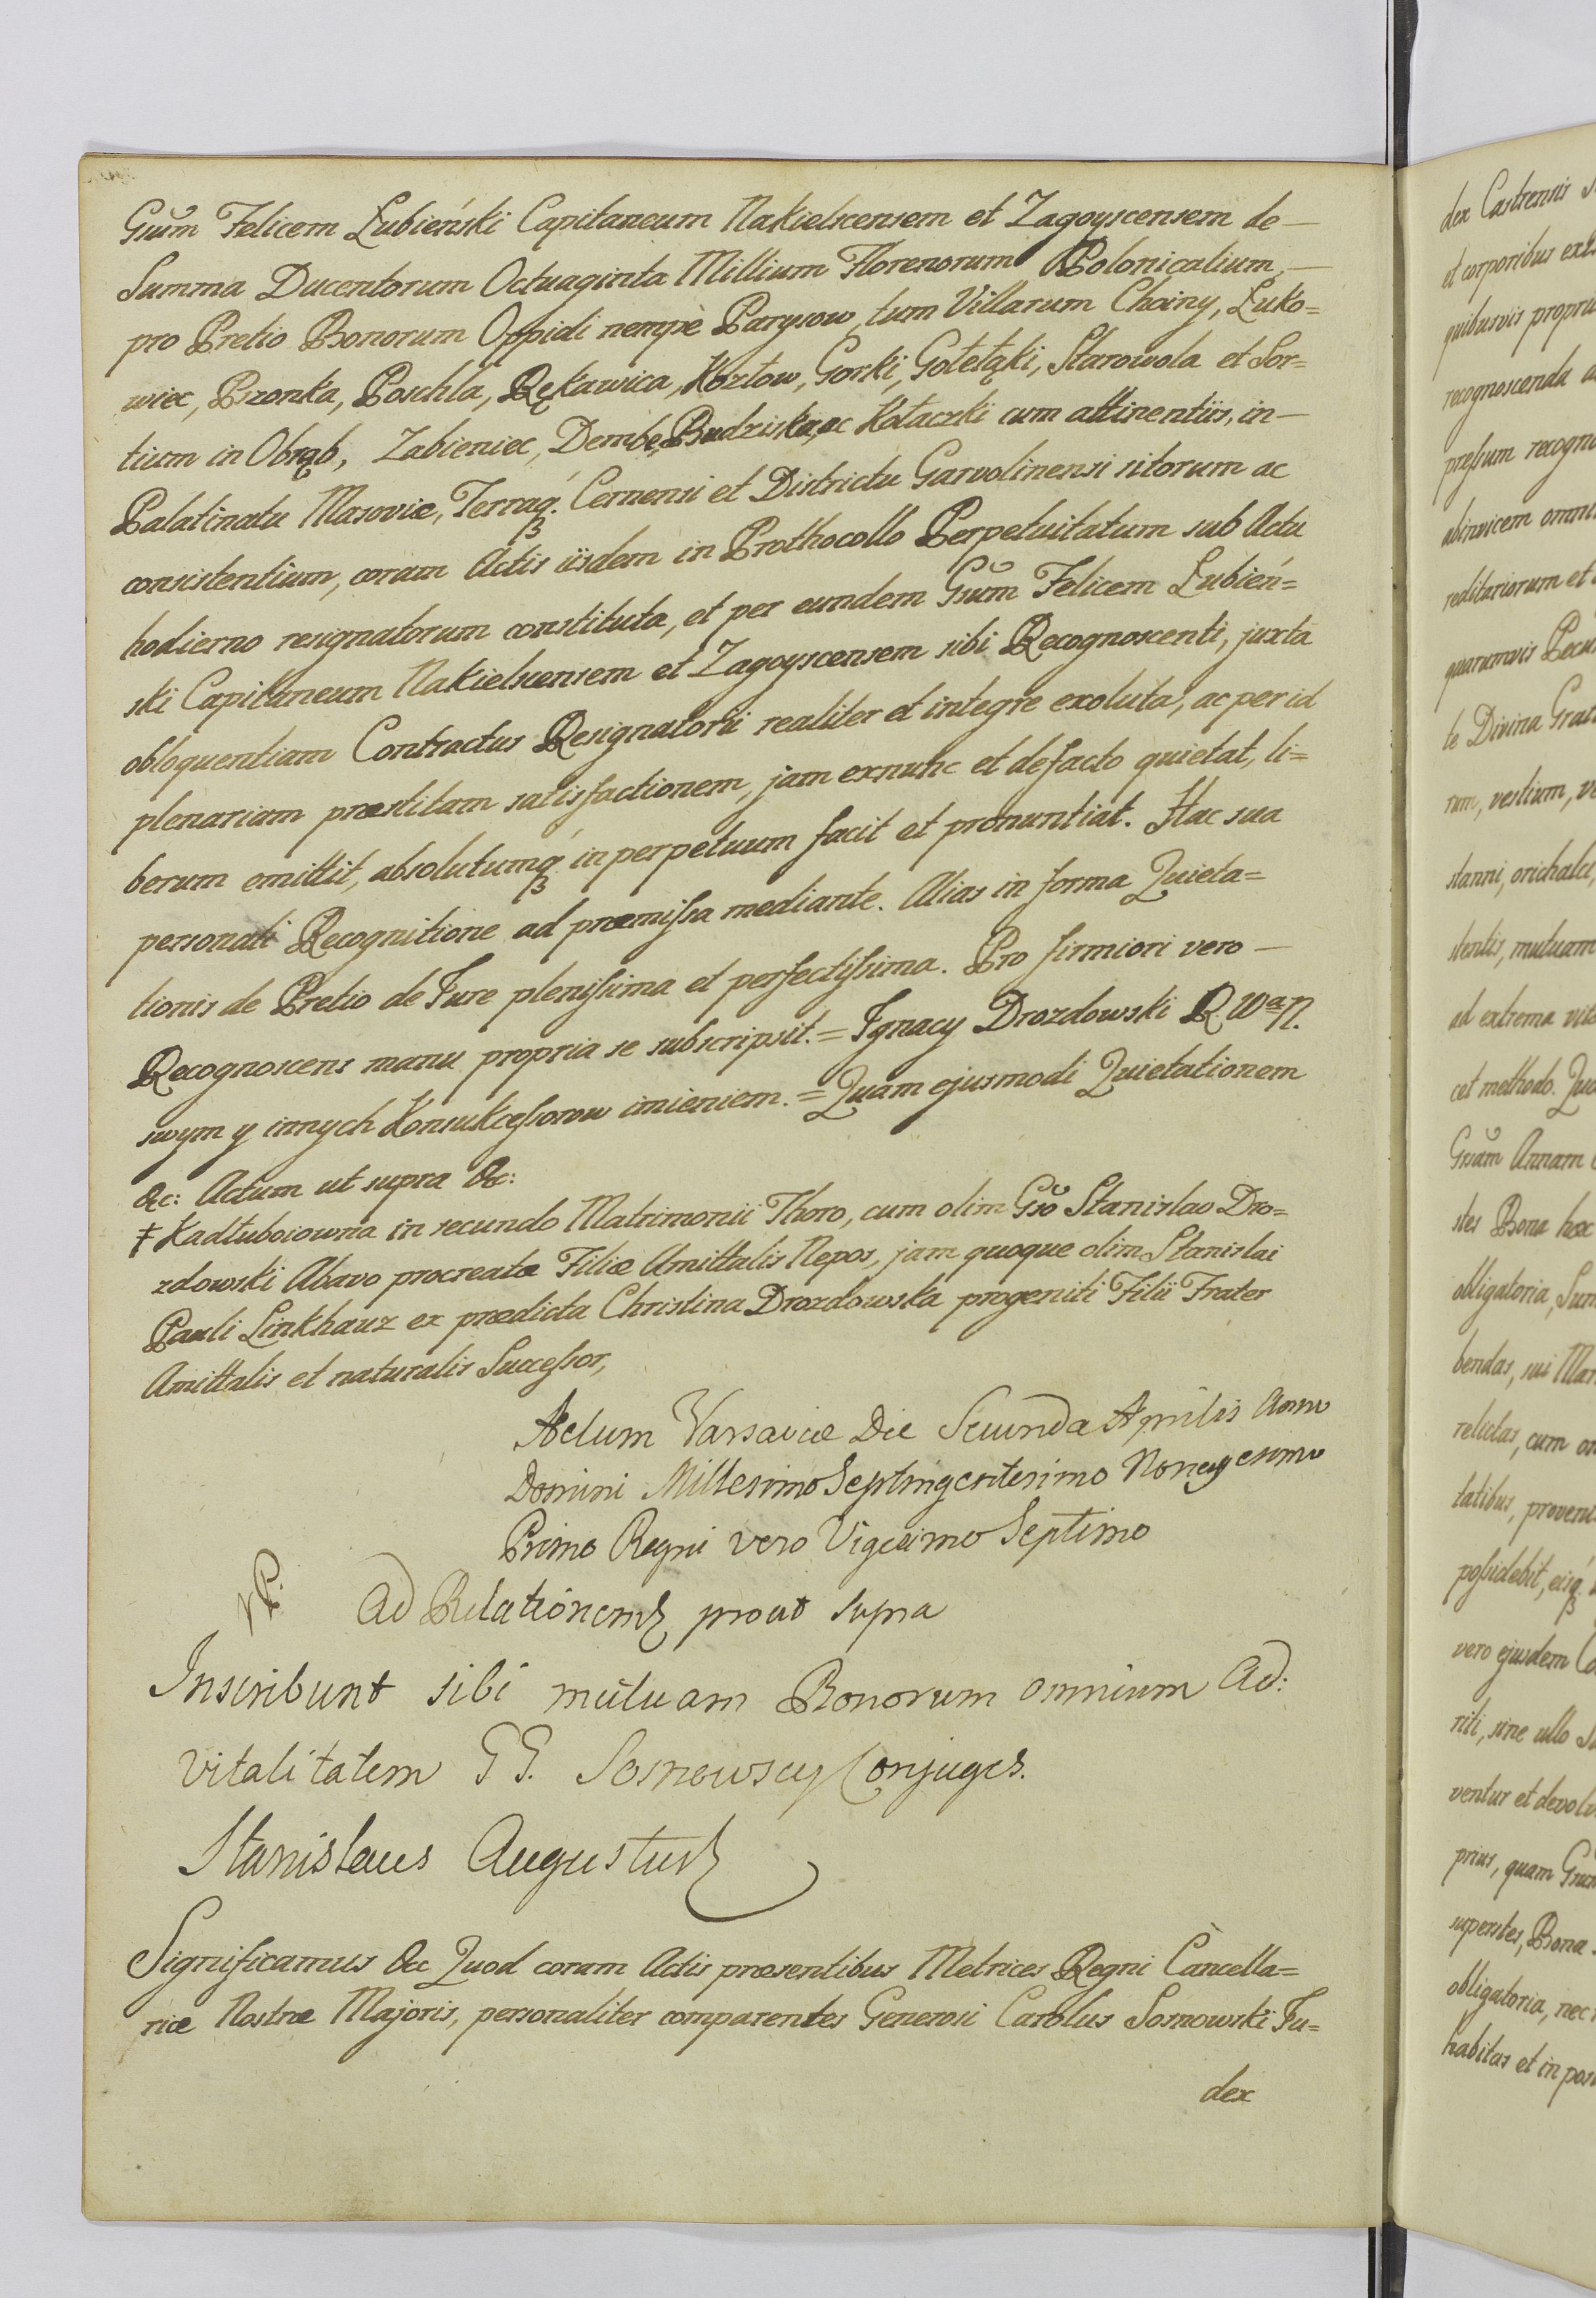 Gsūm Felicem Łubieński Capitaneum Nakielscensem et Zagoyscensem de —
Summa Ducentorum Octuaginta Millium Florenorum Polonicalium, —
pro Pretio Bonorum Oppidi nempè Parysow, tum Villarum Choiny, Łuko=
wiec, Pzonka, Poschla, Rękawica, Kozłow, Gorki, Gołełąki, Starowola et Sor=
tium in Obrąb, Zabieniec, Dembe, Budziska, ac Kołaczki cum attinentiis, in —
Palatinatu Masoviæ, Terraq́. Cernensi et Districtu Garvolinensi sitorum ac
consistentium, coram Actis iisdem in Prothocollo Perpetuitatum sub Actu
hodierno resignatorum constituta, et per eundem Gsūm Felicem Łubień=
ski Capitaneum Nakielscensem et Zagoyscensem sibi Recognoscenti, juxta
obloquentiam Contractus Resignatorii realiter et integre exoluta, ac per id
plenariam præstitam satisfactionem, jam exnunc et defacto quietat, li=
berum emittit, absolutumq́ in perpetuum facit et pronuntiat. Hac sua
personali Recognitione ad præmissa mediante. Alias in forma Quieta=
tionis de Pretio de Jure plenissima et perfectissima. Pro firmiori vero —
Recognoscens manu propria se subscripsit. = Ignacy Drozdowski R. W. N.
swym y innych Konsukcessorow imieniem. = Quam ejusmodi Quietationem
&c: Actum ut supra &c:
‡ Kadłuboiowna in secundo Matrimonii Thoro, cum olim Gsō Stanislao Dro=
zdowski Abavo procreatæ Filiæ Amittalis Nepos, jam quoque olim Stanislai
Pauli Linkhauz ex prædicta Christina Drozdowska progeniti Filii Frater
Amittalis et naturalis Successor,
Actum Varsaviæ Die Secunda Aprilis Anno
Domini Millesimo Septingentesimo Nonagesimo
Primo Regni vero Vigesimo Septimo
Ad Relationem prout supra
Inscribunt sibi mutuam Bonorum omnium Ad:
vitalitatem G G. Sosnowscy Conjuges.
Stanislaus Augustus
Significamus &c Quod coram Actis præsentibus Metrices Regni Cancella=
riæ Nostræ Majoris, personaliter comparentes Generosi Carolus Sosnowski Ju=
dex
dex Castrensis
et corporibus
quibusvis
recognoscenda
pressum
abinvicem
reditariorum et
quarumvis
te Divina
rum, vestium,
stanni, orichalci,
stentis, mutuam
ad extrema
cet methodo.
Gsām Annam
stes Bona hæc
obligatoria,
bendas, sui
relictas, cum
tatibus,
possidebit, eisq́
vero ejusdem
riti, sine ullo
ventur et
prius, quam
superstes, Bona
obligatoria, nec
habitas et in